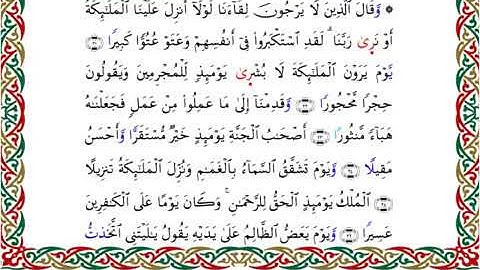 ۞ وَقَالَ ٱلَّذِينَ لَا يَرْجُونَ لِقَآءَنَا لَوْلَآ أُنزِلَ عَلَيْنَا ٱلْمَلَـٰٓئِكَةُ
أَوْ نَرَىٰ رَبَّنَا ۗ لَقَدِ ٱسْتَكْبَرُوا۟ فِىٓ أَنفُسِهِمْ وَعَتَوْ عُتُوًّا كَبِيرًا ۝٢١
يَوْمَ يَرَوْنَ ٱلْمَلَـٰٓئِكَةَ لَا بُشْرَىٰ يَوْمَئِذٍ لِّلْمُجْرِمِينَ وَيَقُولُونَ
حِجْرًا مَّحْجُورًا ۝٢٢ وَقَدِمْنَآ إِلَىٰ مَا عَمِلُوا۟ مِنْ عَمَلٍ فَجَعَلْنَـٰهُ
هَبَآءً مَّنثُورًا ۝٢٣ أَصْحَـٰبُ ٱلْجَنَّةِ يَوْمَئِذٍ خَيْرٌ مُّسْتَقَرًّا وَأَحْسَنُ
مَقِيلًا ۝٢٤ وَيَوْمَ تَشَقَّقُ ٱلسَّمَآءُ بِٱلْغَمَـٰمِ وَنُزِّلَ ٱلْمَلَـٰٓئِكَةُ تَنزِيلًا
۝٢٥ ٱلْمُلْكُ يَوْمَئِذٍ ٱلْحَقُّ لِلرَّحْمَـٰنِ ۚ وَكَانَ يَوْمًا عَلَى ٱلْكَـٰفِرِينَ
عَسِيرًا ۝٢٦ وَيَوْمَ يَعَضُّ ٱلظَّالِمُ عَلَىٰ يَدَيْهِ يَقُولُ يَـٰلَيْتَنِى ٱتَّخَذْتُ